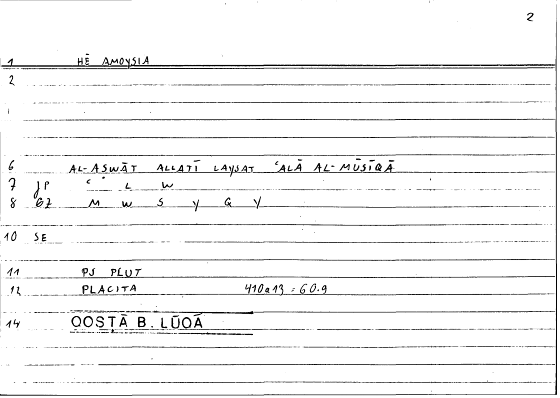 2
1 HĒ AMOYSIA
2
6 AL-ASWĀT ALLATĪ LAYSAT ʿALĀ AL-MŪSĪQĀ
7 JP ʿ L W
8 GZ M W S Y Q Y
10 SE
11 PS PLUT
12 PLACITA 410a13 = 60.9
14 QOSṬĀ B. LŪQĀ